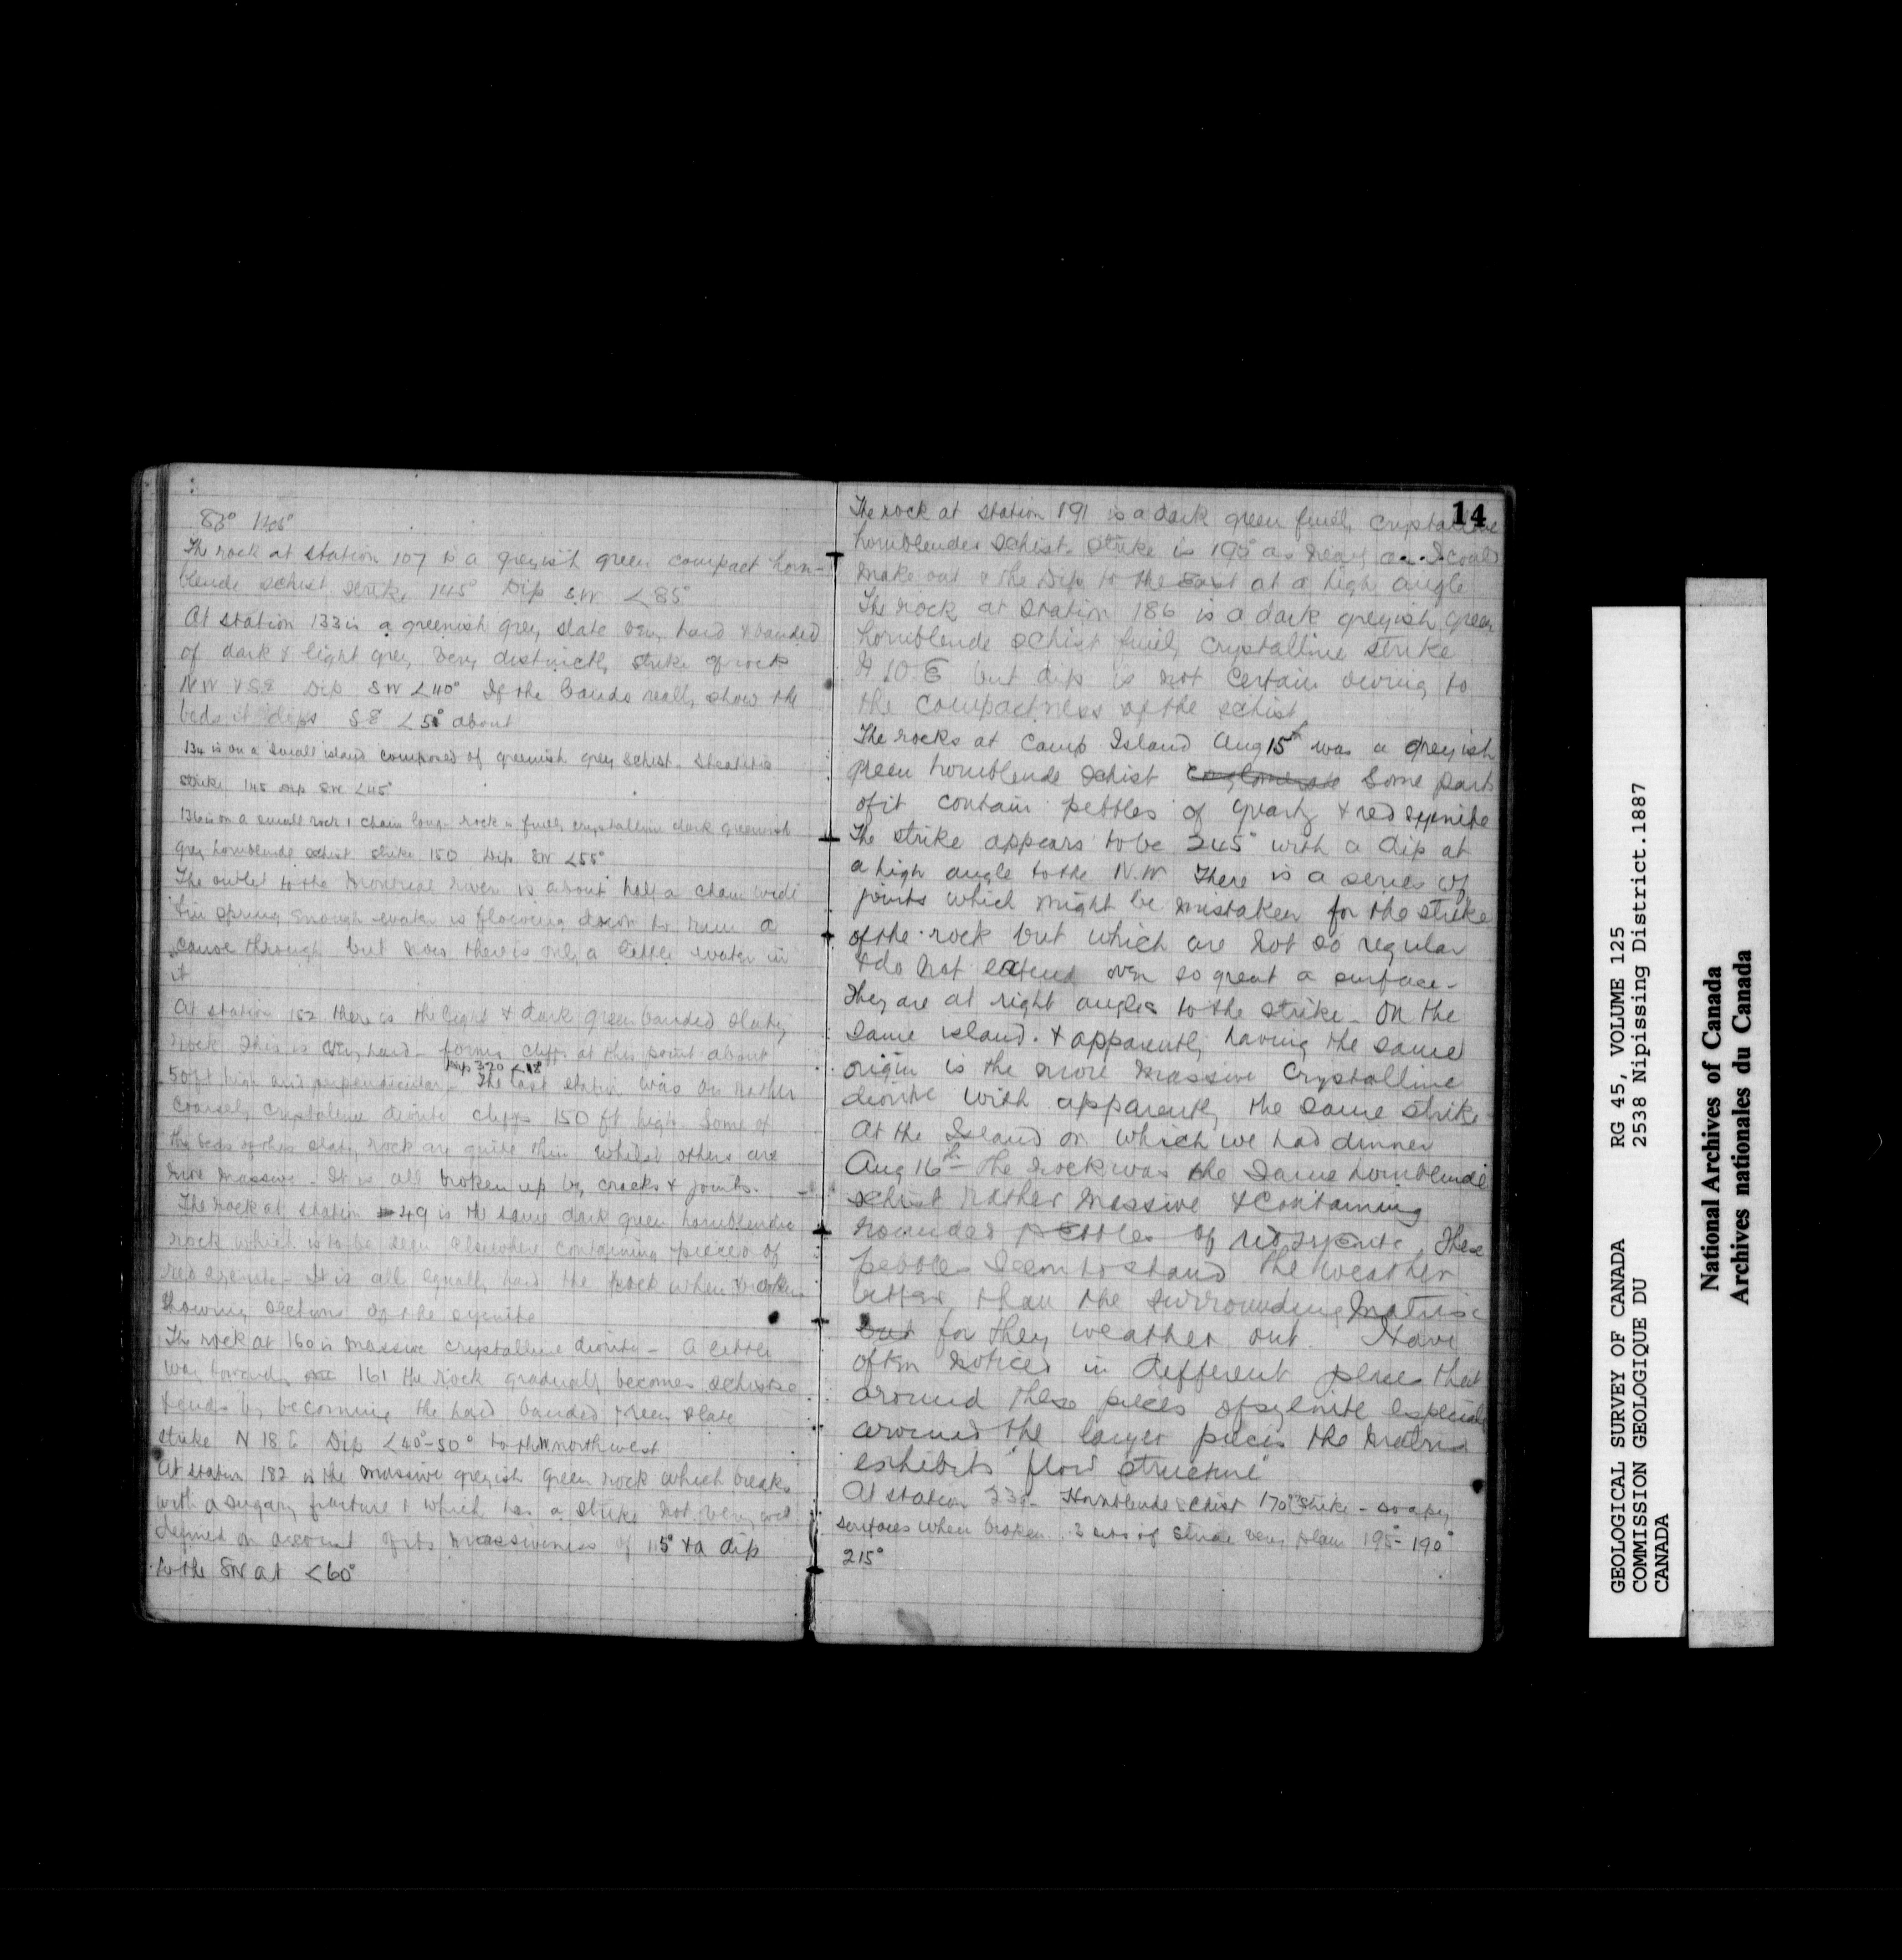 83° 1106°
The rock at station 107 is a greyish green compact horn-
blende schist strike 145° Dip S.W <85°
At station 133 is a greenish grey slate very hard & banded
of dark & light grey very distinctly strike of rock
NW & SE Dip SW <40° If the bands really show the
beds it dips SE <5° about
134 is on a small island composed of greenish grey schist. Steatitic
strike 145 dip SW <45°
136 is on a small rock 1 chain long - rock is finely crystalline dark greenish
grey hornblende schist strike 150 Dip SW <55°
The outlet to the Montreal river is about half a chain wide
& in spring enough water is flowing down to run a
canoe through but now there is only a little water in
it
At station 152 there is the light & dark green banded slaty
rock This is very hard - forms cliffs at this point about
Dip 320 <12°
50 ft high and perpendicular - The last station was on rather
coarsely crystalline diorite cliffs 150 ft high Some of
the beds of this slaty rock are quite thin whilst others are
more massive - It is all broken up by cracks & joints.
The rock at station 49 is the same dark green hornblendic
rock which is to be seen elsewhere containing pieces of
red syenite - It is all equally hard the rock when broken
showing sections of the syenite
The rock at 160 is massive crystalline diorite - A little
way towards 161 the rock gradually becomes schistose
& ends by becoming the hard banded green slate
strike N 18 E Dip <40°-50° to the northwest
At station 182 is the massive greyish green rock which breaks
with a sugary fracture & which has a strike not very well
defined on account of its massiveness of 115° & a dip
to the SW at <60°
14
The rock at station 191 is a dark green finely crystalline
hornblendes schist - strike is 195° as near as I could
make out & the Dip to the East at a high angle
The rock at station 186 is a dark greyish green
hornblende schist finely crystalline strike
N 10 E but dip is not certain owing to
the compactness of the schist
The rocks at Camp Island Aug 15th was a greyish
green hornblende schist conglomerate Some parts
of it contain pebbles of quartz & red syenite
The strike appears to be 245° with a dip at
a high angle to the N.W There is a series of
joints which might be mistaken for the strike
of the rock but which are not so regular
& do not extend over so great a surface -
They are at right angles to the strike - On the
same island. & apparently having the same
origin is the more massive crystalline
diorite with apparently the same strike -
At the Island on which we had dinner
Aug 16th - the rock was the same hornblende
schist rather massive & containing
rounded pebbles of red syenite. These
pebbles seem to stand the weather
better than the surrounding matrix
but for they weather out. Have
often noticed in different places that
around these pieces of syenite especially
around the larger pieces the matrix
exhibits "flow structure"
At station 235 - Hornblende schist 170° strike - soapy
surfaces when broken. 2 sets of striae very plain 195°-190°
215°
GEOLOGICAL SURVEY OF CANADA RG 45, VOLUME 125
COMMISSION GEOLOGIQUE DU 2538 Nipissing District.1887
CANADA
National Archives of Canada
Archives nationales du Canada